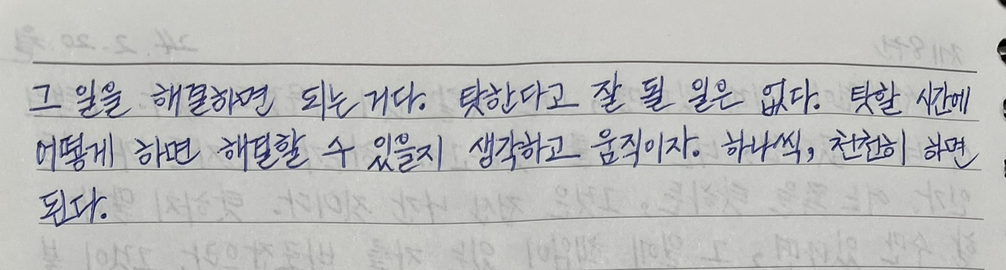 그 일을 해결하면 되는 거다. 탓한다고 잘 될 일은 없다. 탓할 시간에
어떻게 하면 해결할 수 있을지 생각하고 움직이자. 하나씩, 천천히 하면
된다.